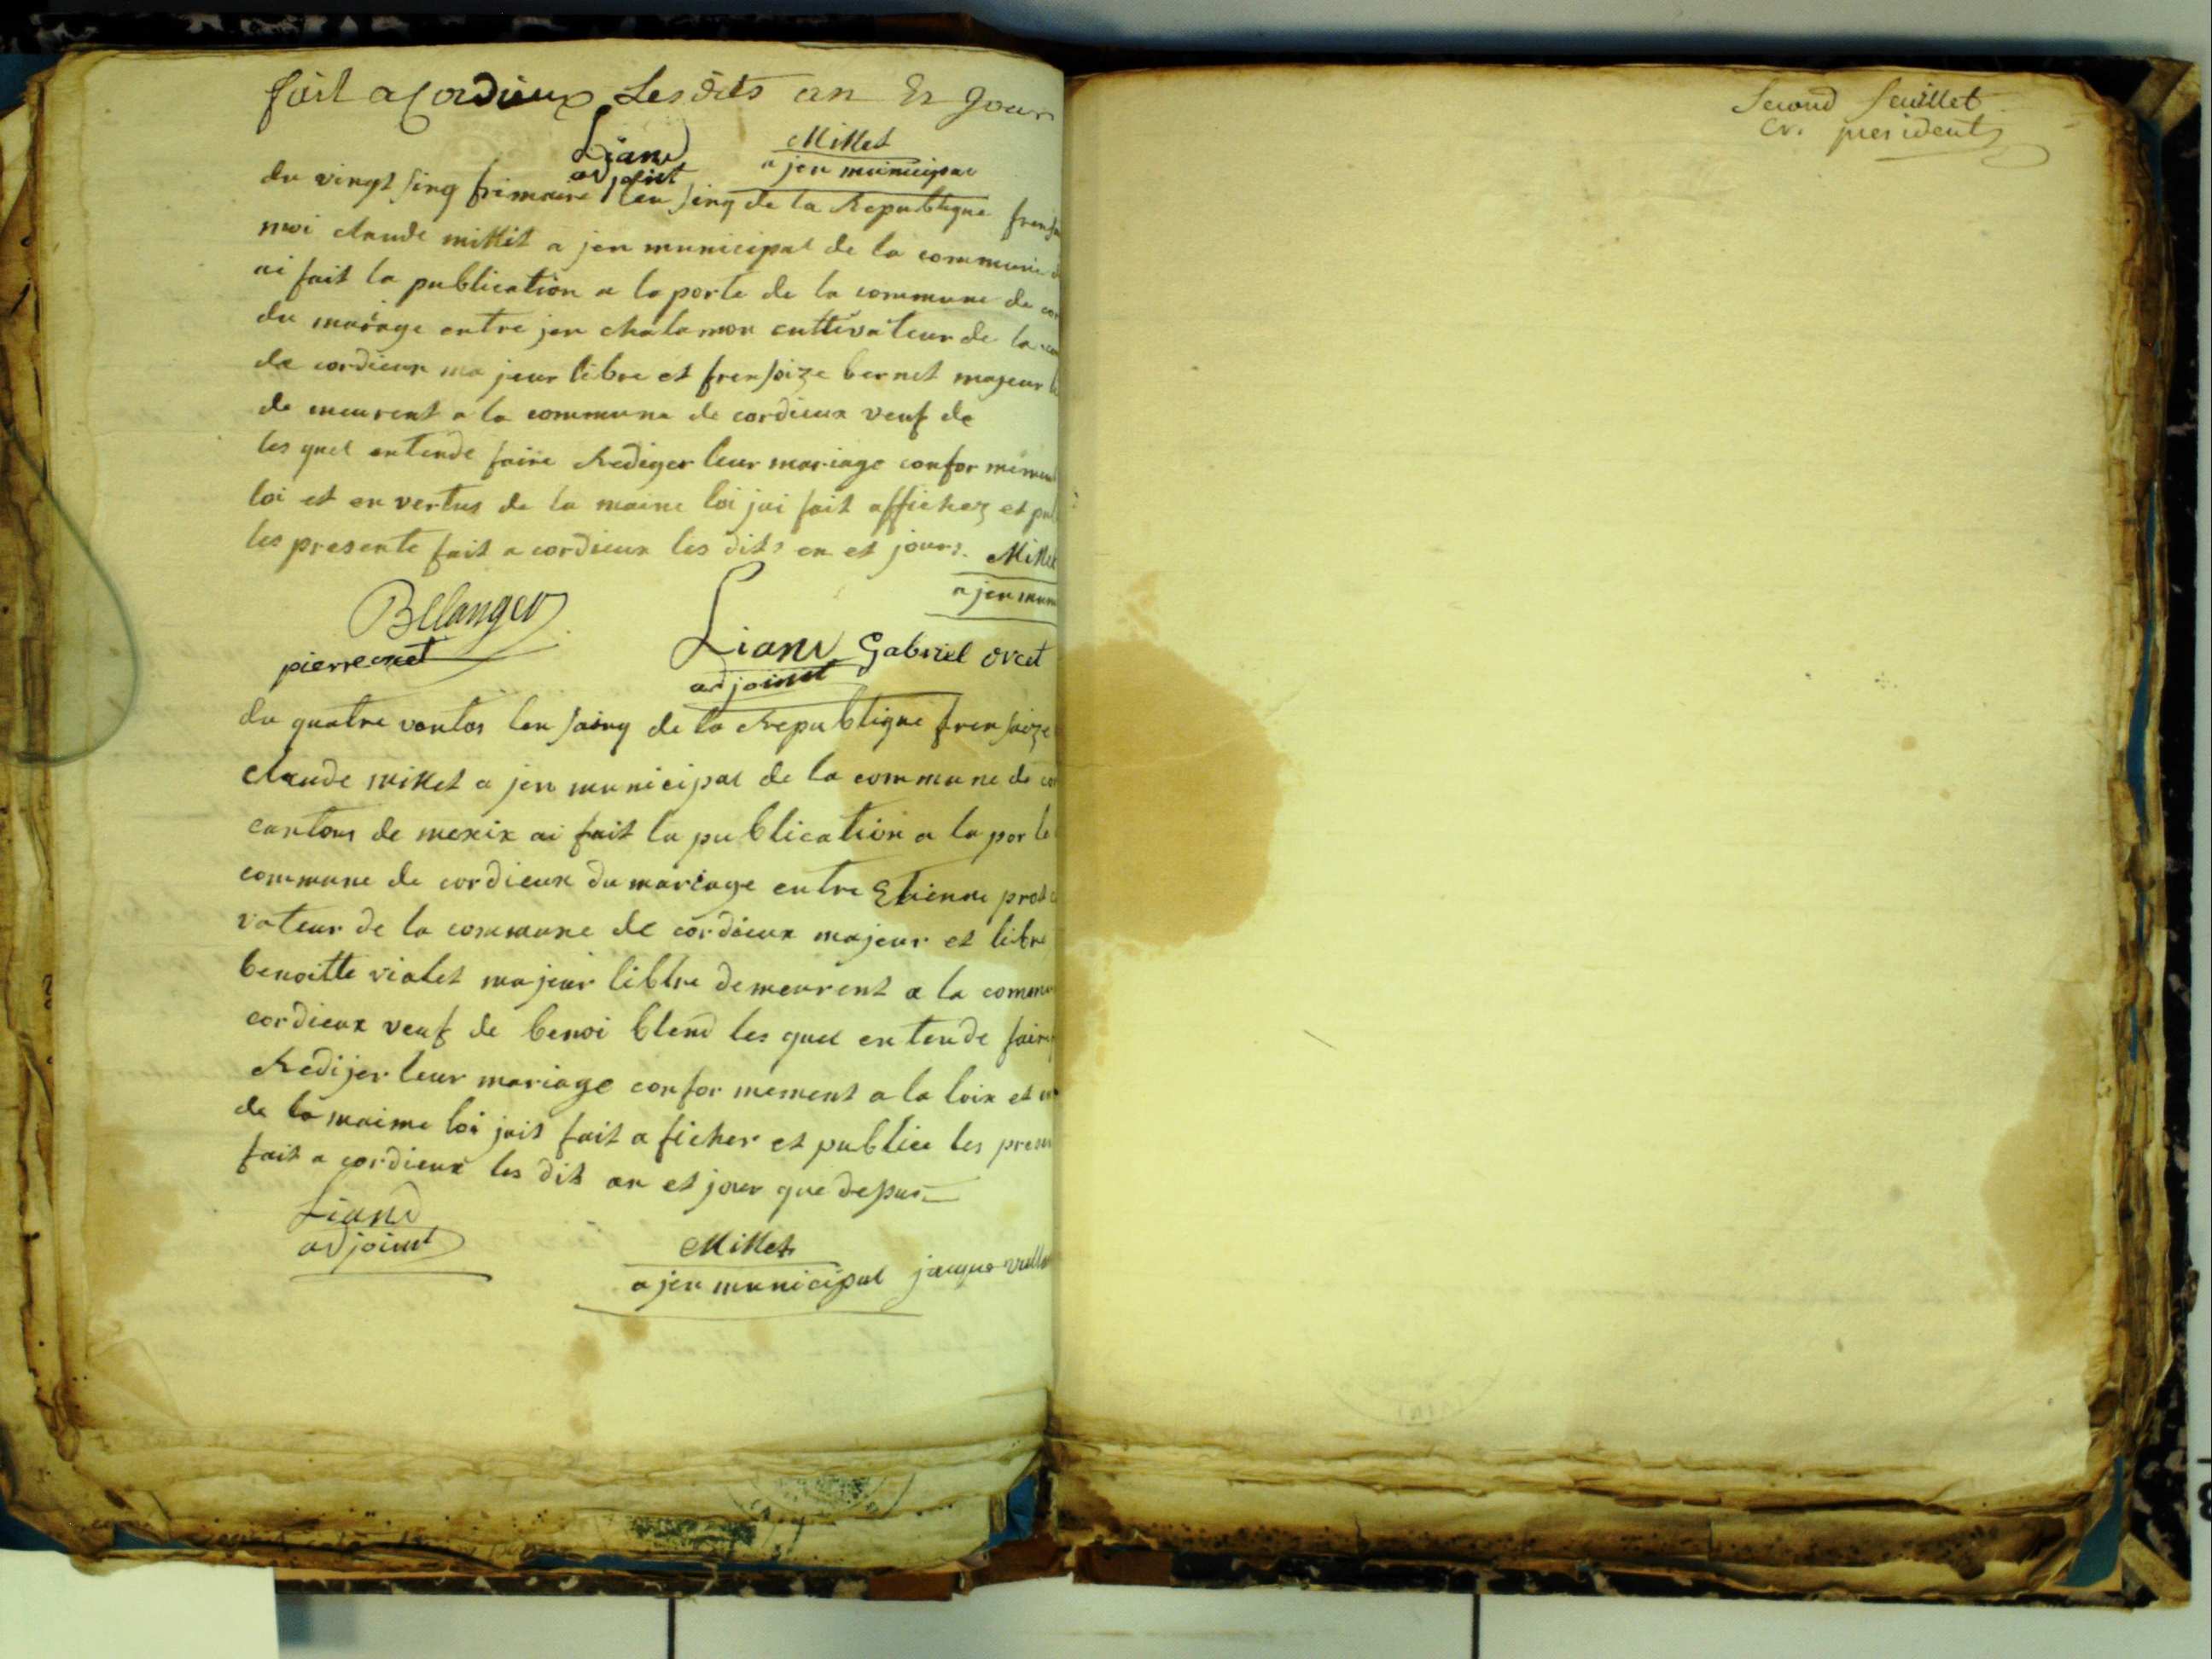 fait a Cordieux Les dits an Et Jour
Liand Millet
adjoint a jen municipal
du vingt sinq frimaire len sinq de la Republique
moi claude millit a jen municipal de la commune
ai fait la publication a la porte de la commune de
du mariage entre jen chalamon cultivateur de la
de cordieux ma jeur libre et frensoize bernet majeur
de meurent a la commune de cordieux veuf de
les quel entende faire Rediger leur mariage confor mement
loi et en vertus de la maine loi jai fait affichez et
les presente fait a cordieux les dits en et jours. Millet
a jen
Belanger
pierre orcet Liand Gabriel orcet
adjoint
du quatre vantos len sainq de la Republique frensoize
claude millet a jen municipal de la commune de
cantons de mexix ai fait la publication a la porte
commune de cordieux du mariage entre Etienne prost
vateur de la commune de cordieux majeur et libre
benoitte violet majeur liblre demeurent a la
cordieux veuf de benoi blend les quel entende faire
Redijer leur mariage confor mement a la loix et
de la maime loi jait fait a ficher et publice les
fait a cordieux les dit an et jour que depus
Liand
adjoint Millet
a jen municipal jacque
Second feuillet
president